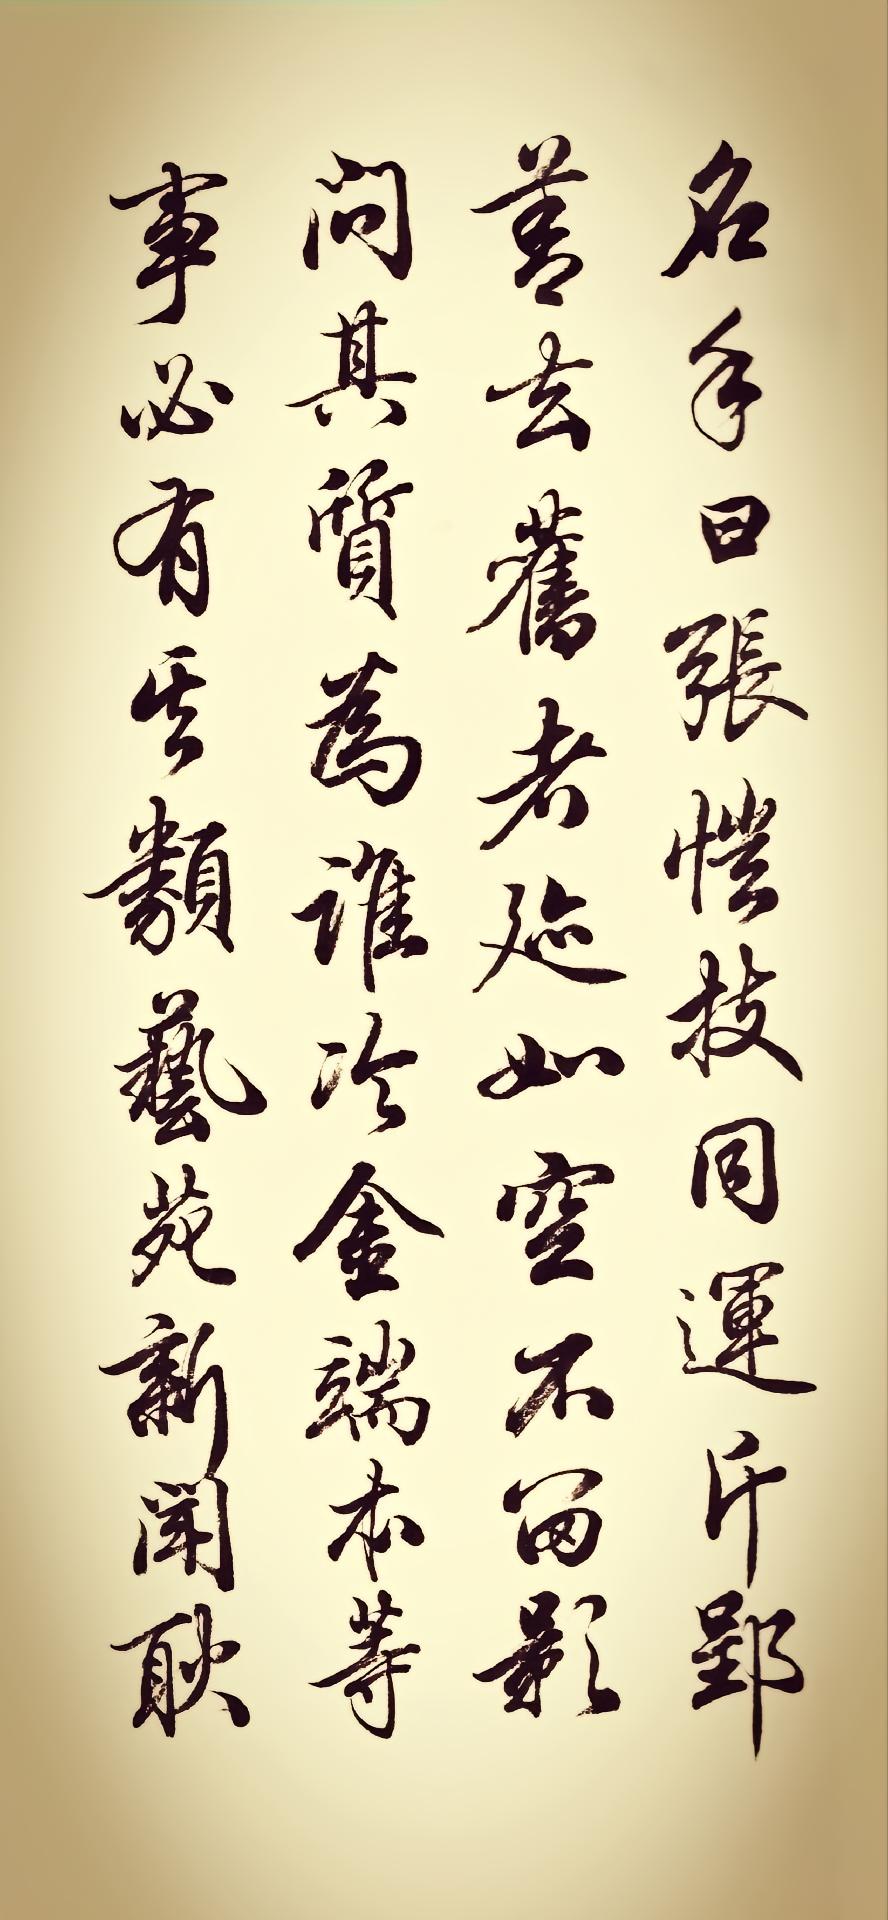 名手曰張愷技同運斤郢
善去舊者迹如空不留影
問其質為誰冷金端本等
事必有其類藝苑新聞耿